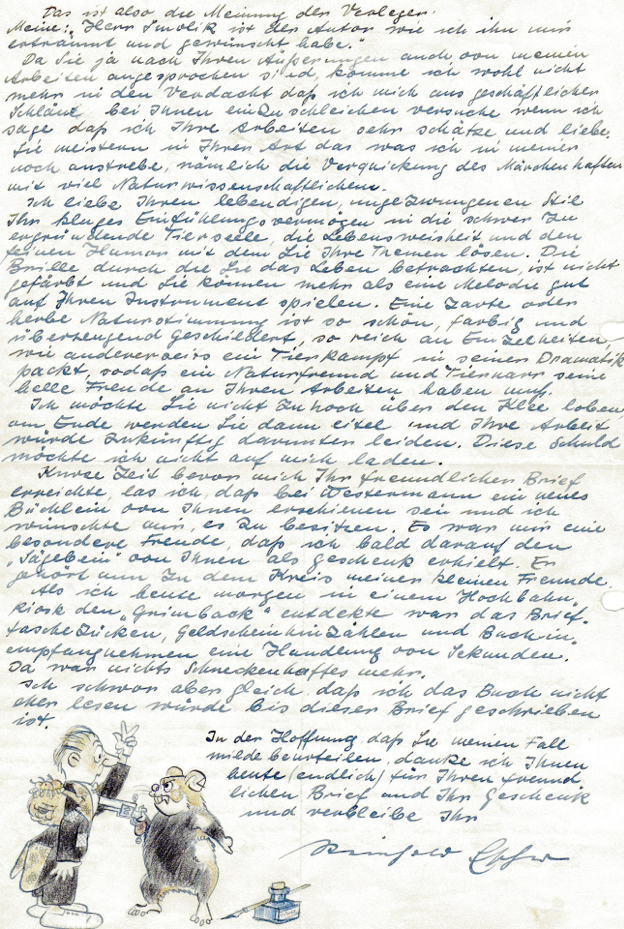 Das ist also die Meinung der Verleger.
Meine: "Herr Smolik ist der Autor wie ich ihn mir
erträumt und gewünscht habe."
Da Sie ja nach Ihren Äußerungen auch von meinen
Arbeiten angesprochen sind, komme ich wohl nicht
mehr in den Verdacht daß ich mich aus geschäftlicher
Schläue bei Ihnen einzuschleichen versuche wenn ich
sage daß ich Ihre Arbeiten sehr schätze und liebe.
Sie meistern in Ihrer Art das was ich in meiner
noch anstrebe, nämlich die Verquickung des Märchenhaften
mit viel Naturwissenschaftlichem.
Ich liebe Ihren lebendigen, ungezwungenen Stil
Ihr kluges Einfühlungsvermögen in die schwer zu
ergründende Tierseele, die Lebensweisheit und den
feinen Humor mit dem Sie Ihre Themen lösen. Die
Brille durch die Sie das Leben betrachten, ist nicht
gefärbt und Sie können mehr als eine Melodie gut
auf Ihrem Instrument spielen. Eine zarte oder
herbe Naturstimmung ist so schön, farbig und
überzeugend geschildert, so reich an Einzelheiten,
wie andererseits ein Tierkampf in seiner Dramatik
packt, sodaß ein Naturfreund und Tiernarr seine
helle Freude an Ihren Arbeiten haben muß.
Ich möchte Sie nicht zu hoch über den Klee loben,
am Ende werden Sie dann eitel und Ihre Arbeit
würde zukünftig darunter leiden. Diese Schuld
möchte ich nicht auf mich laden.
Kurze Zeit bevor mich Ihr freundlicher Brief
erreichte, las ich, daß bei Westermann ein neues
Büchlein von Ihnen erschienen sei und ich
wünschte mir, es zu besitzen. Es war mir eine
besondere Freude, daß ich bald darauf den
"Sägebein" von Ihnen als Geschenk erhielt. Er
gehört nun zu dem Kreis meiner kleinen Freunde.
Als ich heute morgen in einem Hochbahn-
kiosk den "Grimback" entdeckte war das Brief-
taschezücken, Geldscheinhinzählen und Buch-in-
empfangnehmen eine Handlung von Sekunden.
Da war nichts Schneckenhaftes mehr.
Ich schwor aber gleich, daß ich das Buch nicht
eher lesen würde bis dieser Brief geschrieben
ist.
In der Hoffnung, daß Sie meinen Fall
milde beurteilen, danke ich Ihnen
heute (endlich) für Ihren freund
lichen Brief und Ihr Geschenk
und verbleibe Ihr
Reinhold Escher